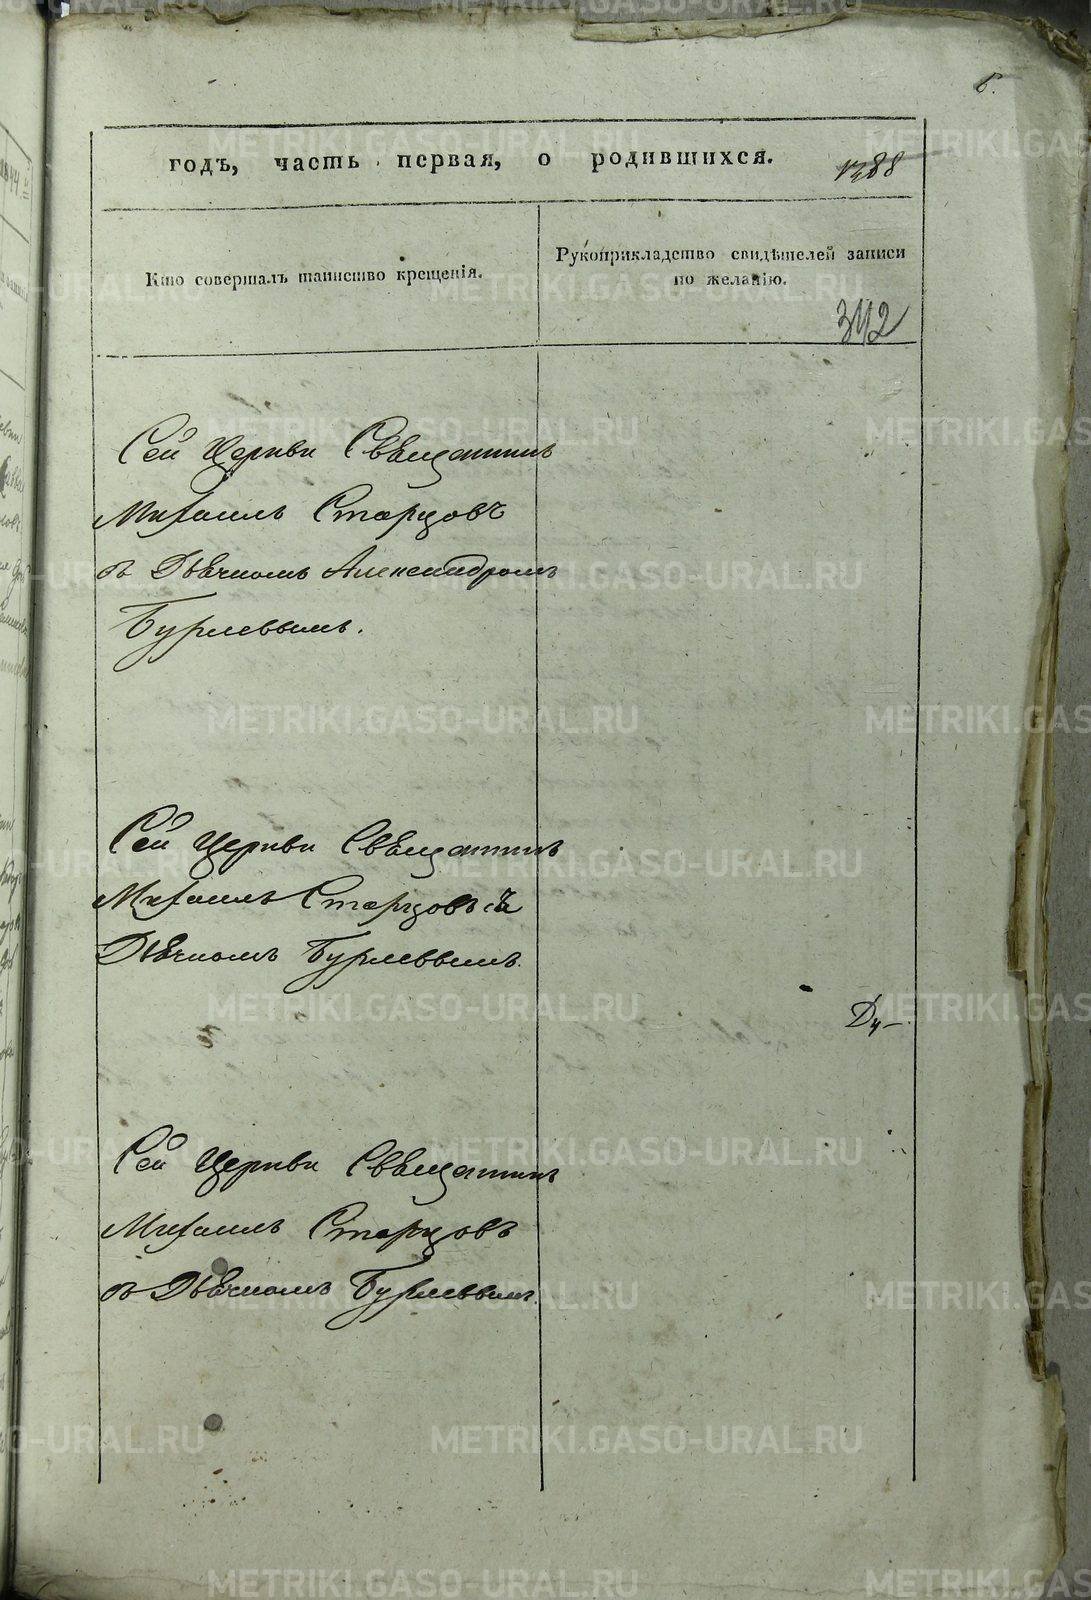 б.
годъ, часть первая, о родившихся.
1388
Кто совершалъ таинство крещенія.
Рукоприкладство свидѣтелей записи
по желанію.
342
Сей Церкви Священникъ
Михаилъ Старцовъ
съ Дьячкомъ Александромъ
Бурлевымъ.
Сей Церкви Священникъ
Михаилъ Старцовъ съ
Дьячкомъ Бурлевымъ.
Сей Церкви Священникъ
Михаилъ Старцовъ
съ Дьячкомъ Бурлевымъ.
METRIKI.GASO-URAL.RU